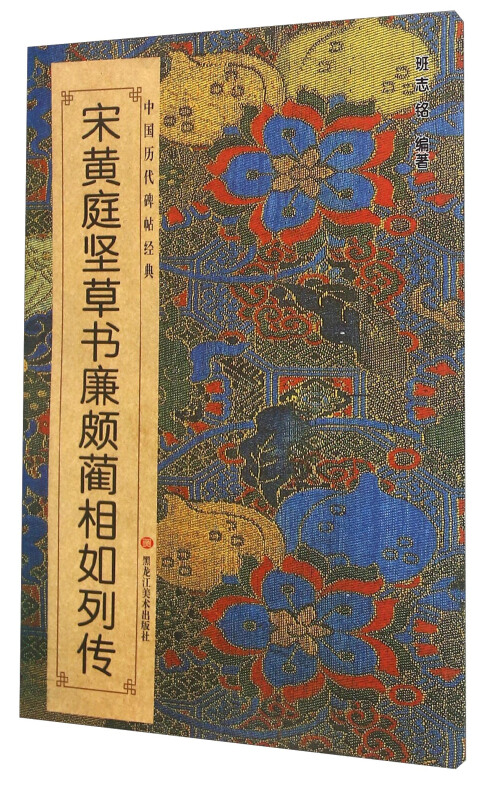 班志铭 编著
中国历代碑帖经典
宋黄庭坚草书廉颇蔺相如列传
黑龙江美术出版社